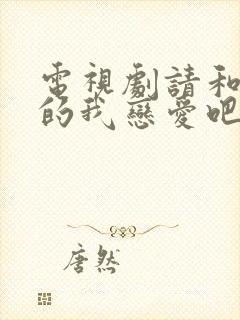 電視劇請和
的我戀愛吧
唐然